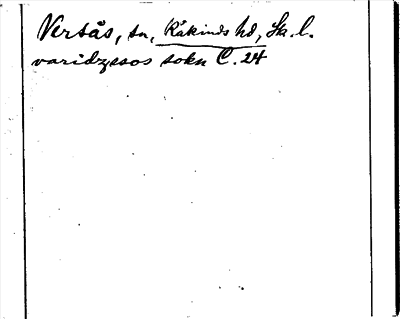 Versås, sn, Kåkinds hd, Ska. l.
varidzssos sokn C. 24